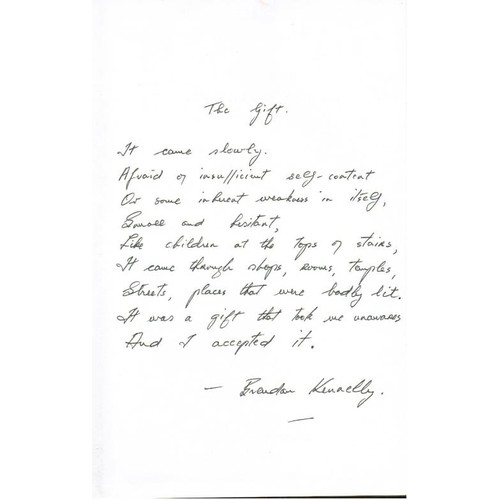 The Gift.
It came slowly.
Afraid of insufficient self-content
Or some inherent weakness in itself,
Small and hesitant,
Like children at the tops of stairs,
It came through shops, rooms, temples,
Streets, places that were badly lit.
It was a gift that took me unawares
And I accepted it.
— Brendan Kennelly.